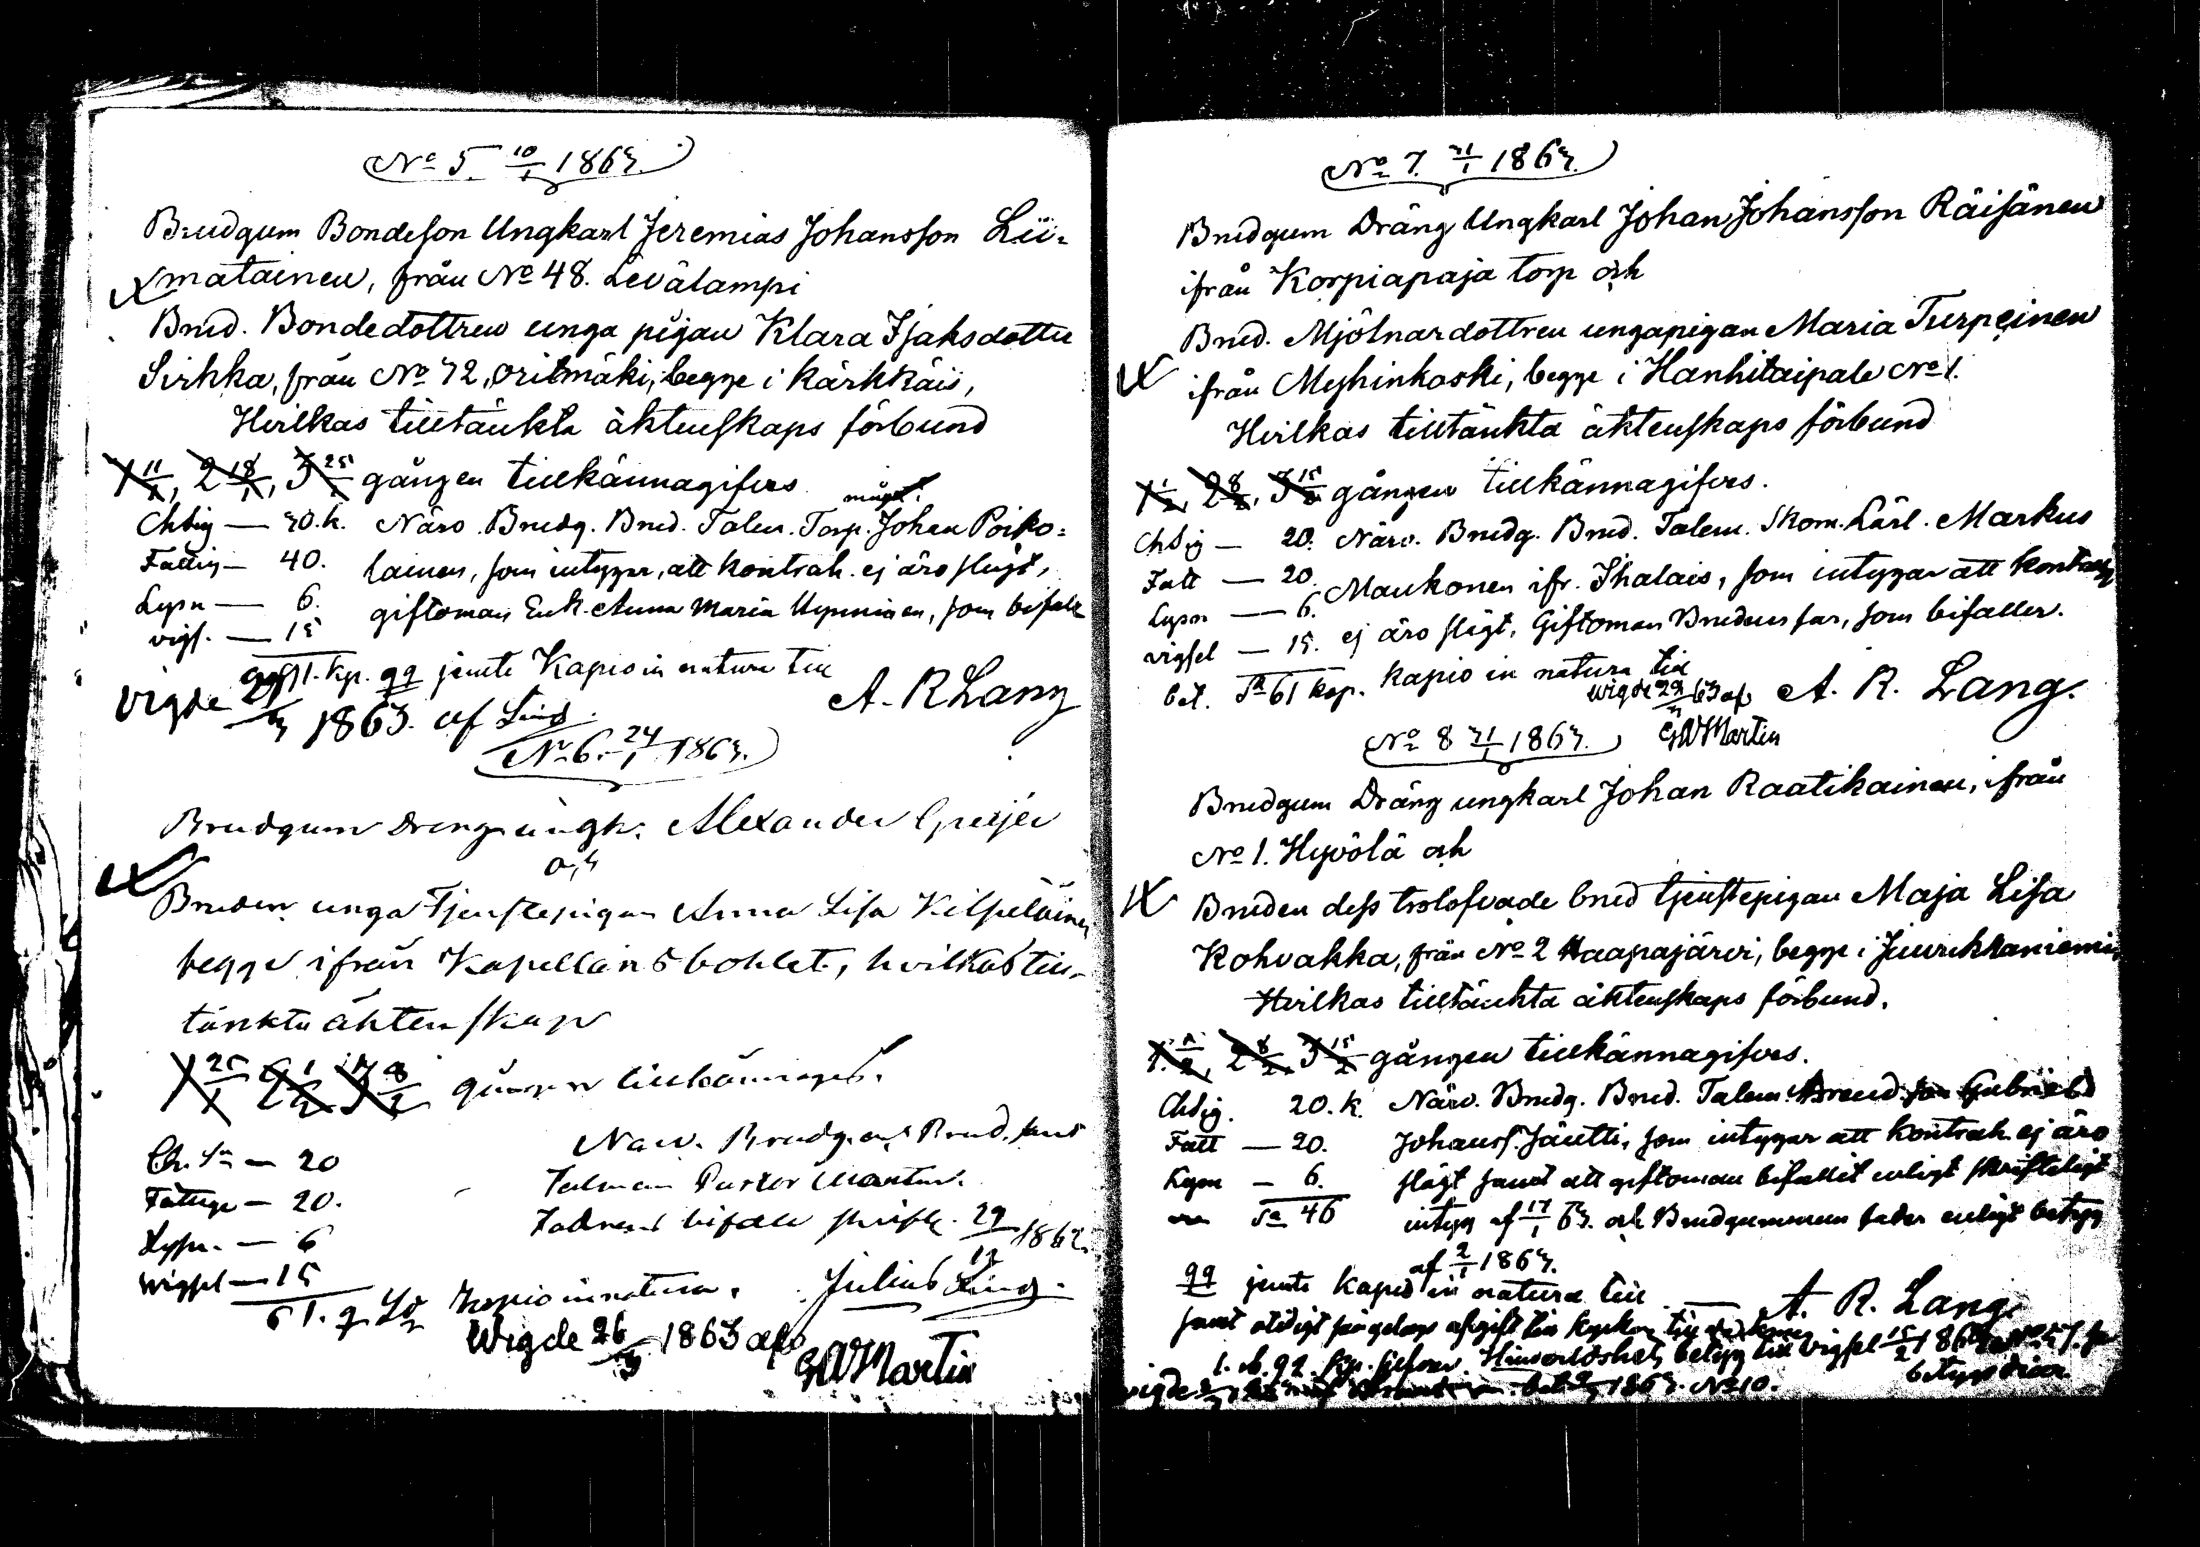 No 5. 10/1 1863.
Brudgum Bondeson Ungkarl Jeremias Johansson Lii=
matainen, från No 48. Levälampi
Brud. Bondedottren unga pigan Klara Isaksdotter
Sirkka, från No 72, Oritmäki, begge i Kärkkäis,
Hvilkas tilltänkta äktenskaps förbund
1 11/1, 2 18/1, 3 25/1 gången tillkännagifves
Chsig — 20. k. Närv. Brudg. Brud. Talem. Torp. Johan Poiko=
Fattig — 40. lainen, som intygar, att kontrah. ej äro slägt,
Lysn — 6. giftoman Enk. Anna Maria, som bifall
vigs. — 15
kp. qq jemte Kapio in natura till
A. R Lang
vigde 1863. af Lind.
No 6. 24/1 1863.
Brudgum Dreng ungk. Alexander
och
Bruden unga Tjenstepigan Anna Lisa Kilpeläinen
begge ifrån Kapellansbohlet, hvilkas till-
tänkta äktenskap
1 25/1 2 1/2 3 8/2 gången tillkännages.
Närv. Brudg. och Brud. samt
Ch. Sn — 20
Talman Pastor Martin.
Fattige — 20.
bifall skriftl. 29/12 1862.
Lysn. — 6
Wigsel — 15
61. q Kapio in natura. Julius Lind.
Wigde 26/3 1863 af
GWMartin
No 7. 31/1 1863.
Brudgum Dräng Ungkarl Johan Johansson Räisänen
ifrån Korpiapaja torp och
Brud. Mjölnardottren ungapigan Maria Turpeinen
ifrån Myhinkoski, begge i Hanhitaipale No 1.
Hvilkas tilltänkta äktenskaps förbund
1 1/2, 2 8/2, 3 15/2 gången tillkännagifves.
Chsig — 20. Närv. Brudg. Brud. Talem. Skom. Lärl. Markus
Fatt — 20. Maukonen ifr. Ihalais, som intygar att kontrah
Lysn — 6. ej äro slägt. Giftoman Brudens far, som bifaller.
vigsel — 15.
bet. Sa 61 kop. Kapio in natura till
wigde 22/3 63 af A. R. Lang.
GWMartin
No 8 31/1 1863.
Brudgum Dräng ungkarl Johan Raatikainen, ifrån
No 1. Hyvölä och
Bruden dess trolofvade brud tjenstepigan Maja Lisa
Kohvakka, från No 2 Haapajärvi, begge i
Hvilkas tilltänkta äktenskaps förbund.
1. 1/2, 2 8/2 3 15/2 gången tillkännagifves.
Chsig. 20. k. Närv. Brudg. Brud. Talem. Gabriel
Fatt — 20. Johanss. Jäntti, som intygar att kontrah. ej äro
Lysn — 6. slägt samt att giftoman bifallit enligt skrifteligt
Sa 46 intyg af 17/1 63. och Brudgummens fader enligt betyg
af 2/1 1863.
qq jemte Kapio in natura till
A. R. Lang
samt afgift till kyrkan
betyg till vigsel 15/2
1863. No 10.